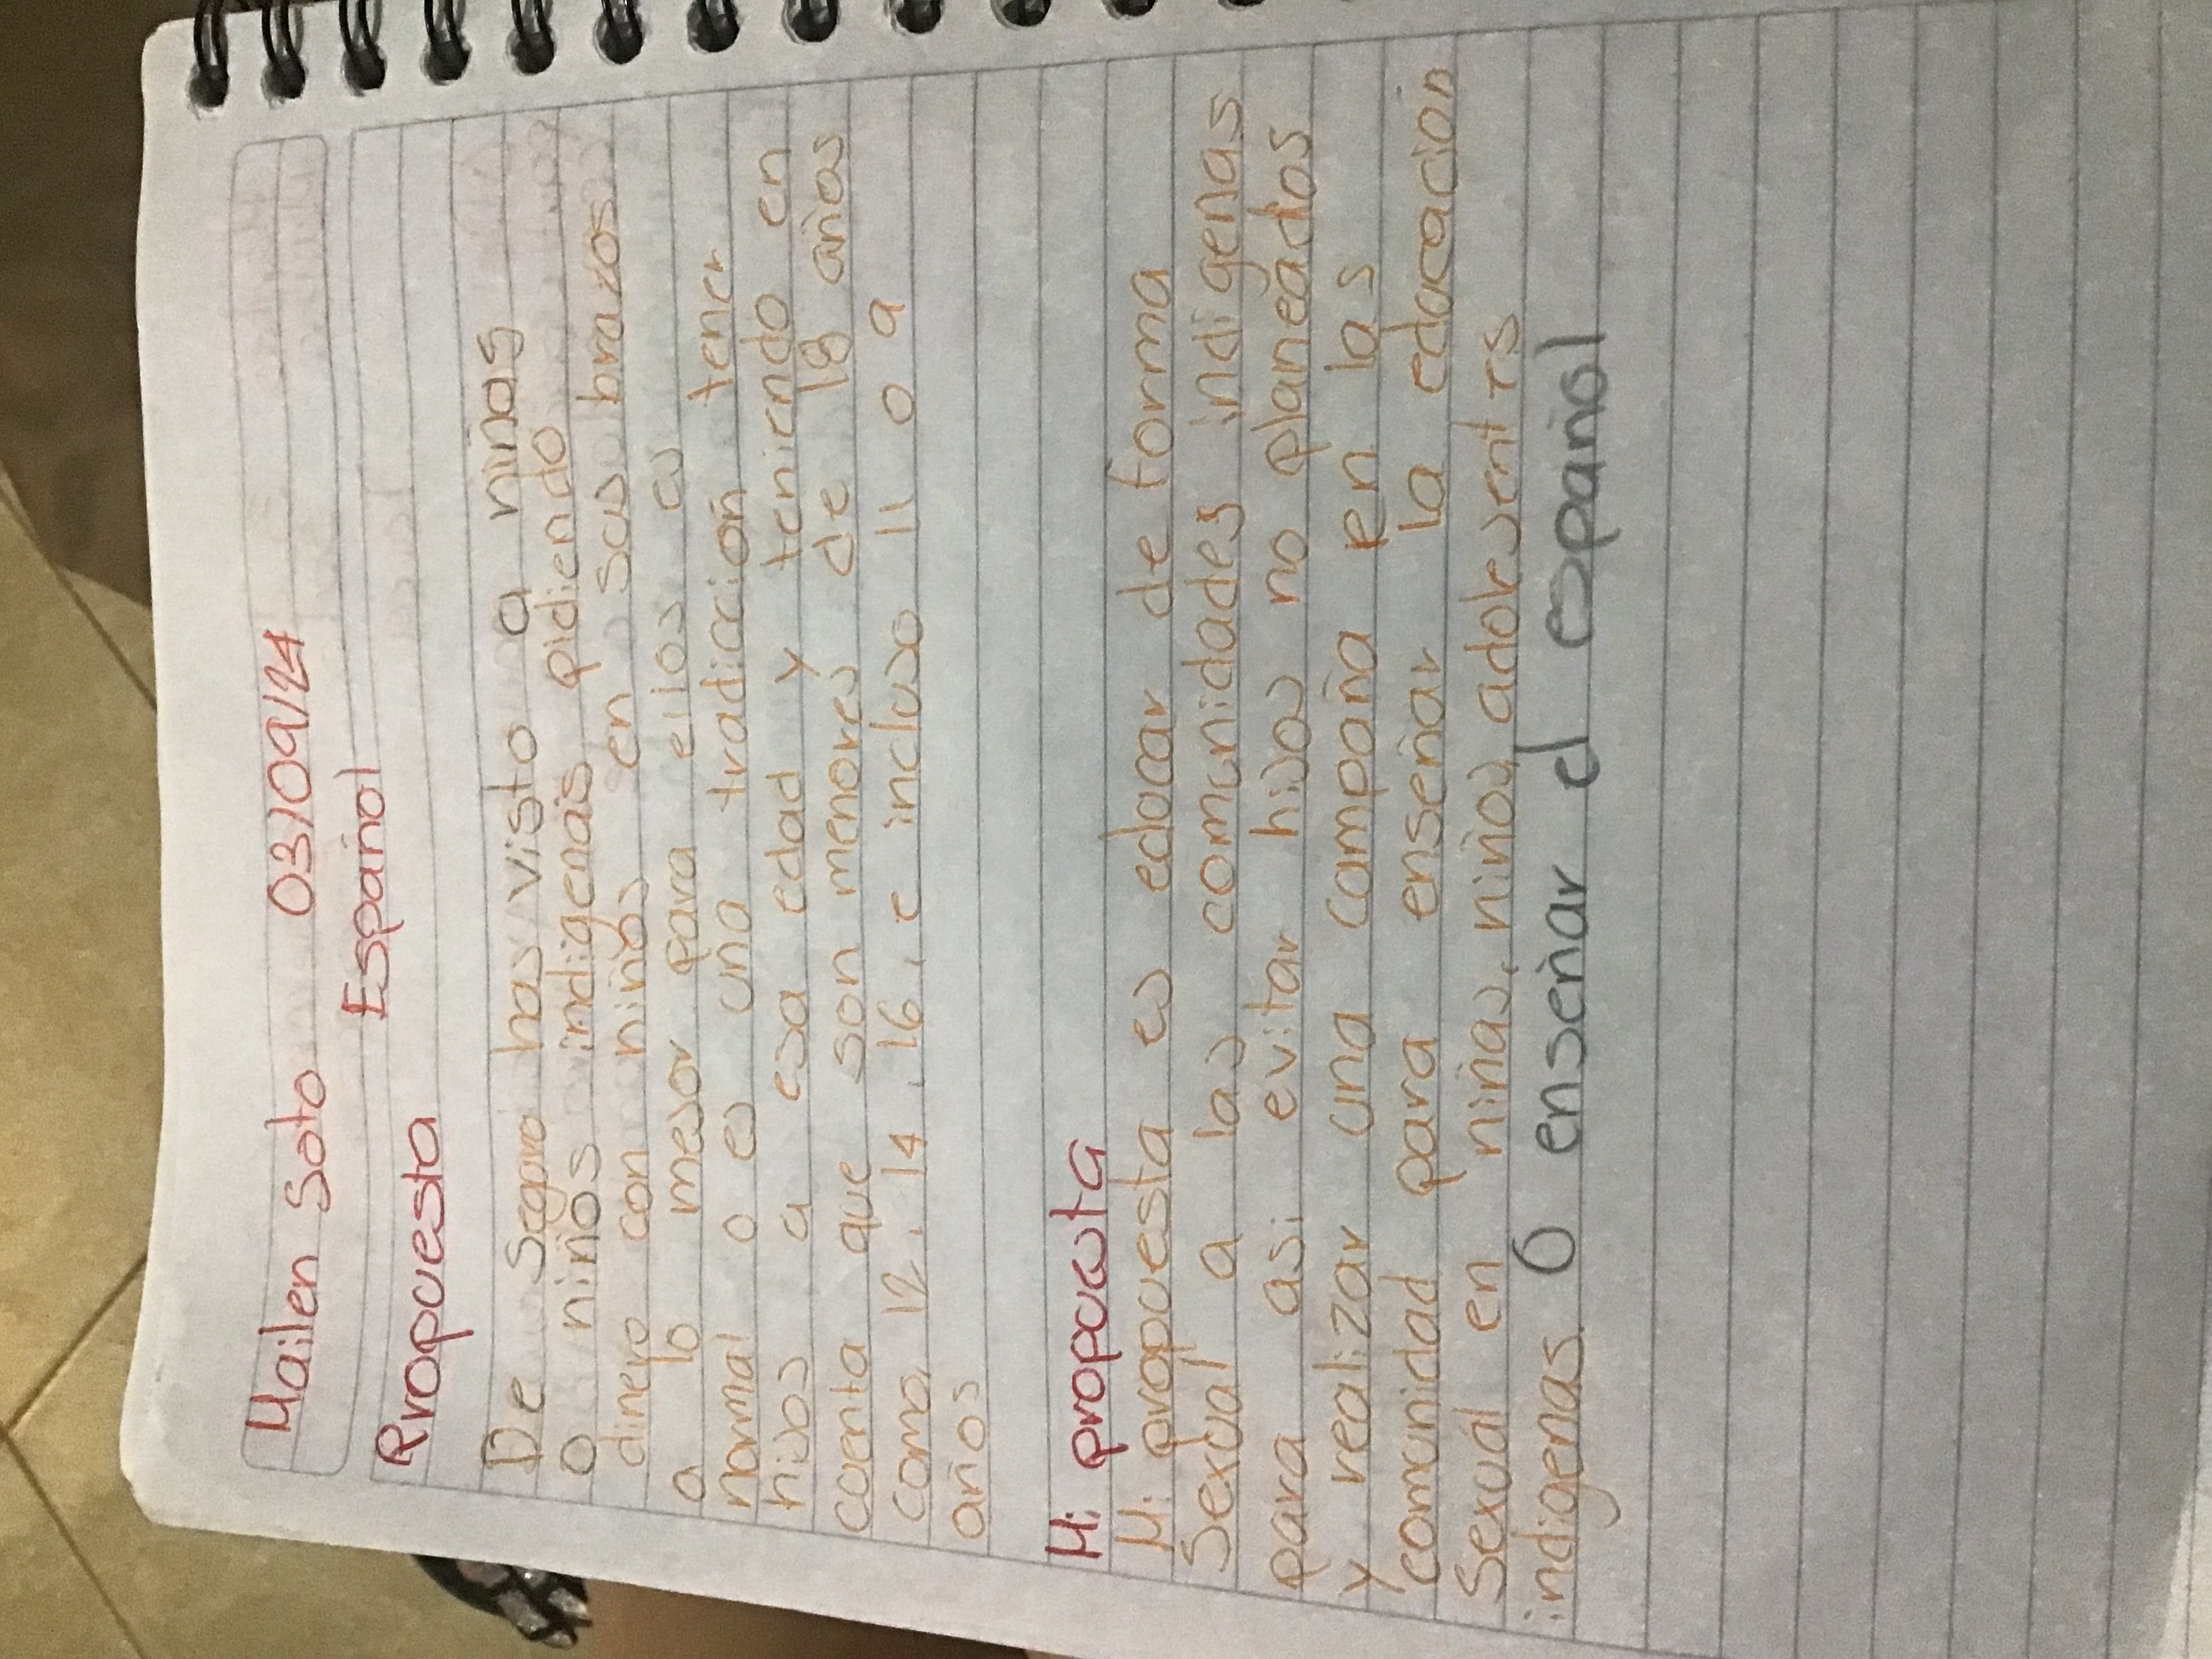 Mailen Soto 03/09/24
Español
Propuesta
De Seguro has visto a niñas
o niños indigenas pidiendo
dinero con niños en sus brazos
a lo mejor para ellos es
normal o es una tradicción tener
hijos a esa edad y teniendo en
cuenta que son menores de 18 años
como 12, 14, 16, e incluso 11 o 9
años
Mi propuesta
Mi propuesta es educar de forma
Sexual a las comunidades indigenas
para asi evitar hijos no planeados
y realizar una campaña en las
comunidad para enseñar la educación
Sexual en niñas, niños, adolesentes
indigenas. O enseñar el español